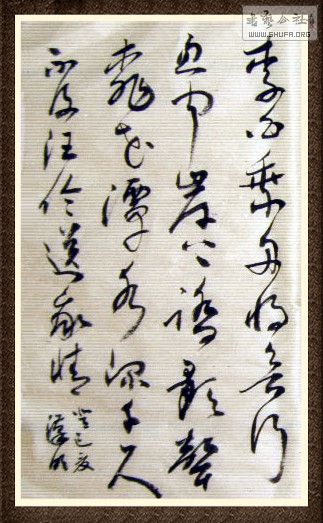 書藝公社
WWW.SHUFA.ORG
李白乘舟將欲行
忽聞岸上踏歌聲
桃花潭水深千尺
不及汪倫送我情
癸巳夏